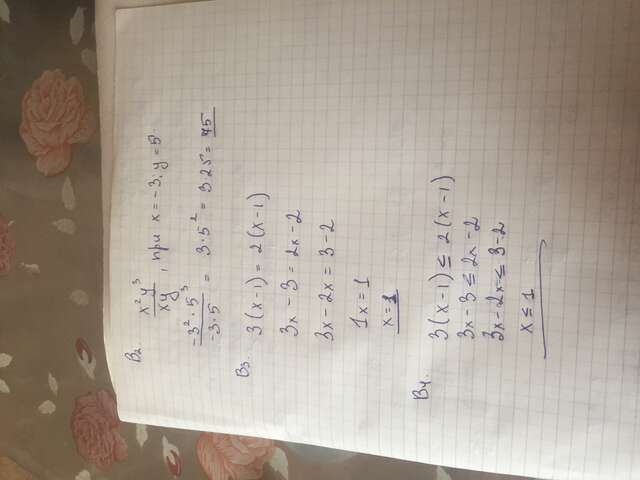 В2.
x²y³/xy, при x = -3; y = 5
-3²·5³/-3·5 = 3·5² = 3·25 = 75
В3.
3(x-1) = 2(x-1)
3x - 3 = 2x - 2
3x - 2x = 3 - 2
1x = 1
x = 1
В4.
3(x-1) ≤ 2(x-1)
3x - 3 ≤ 2x - 2
3x - 2x ≤ 3 - 2
x ≤ 1